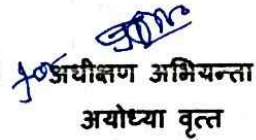 अधीक्षण अभियन्ता
अयोध्या वृत्त